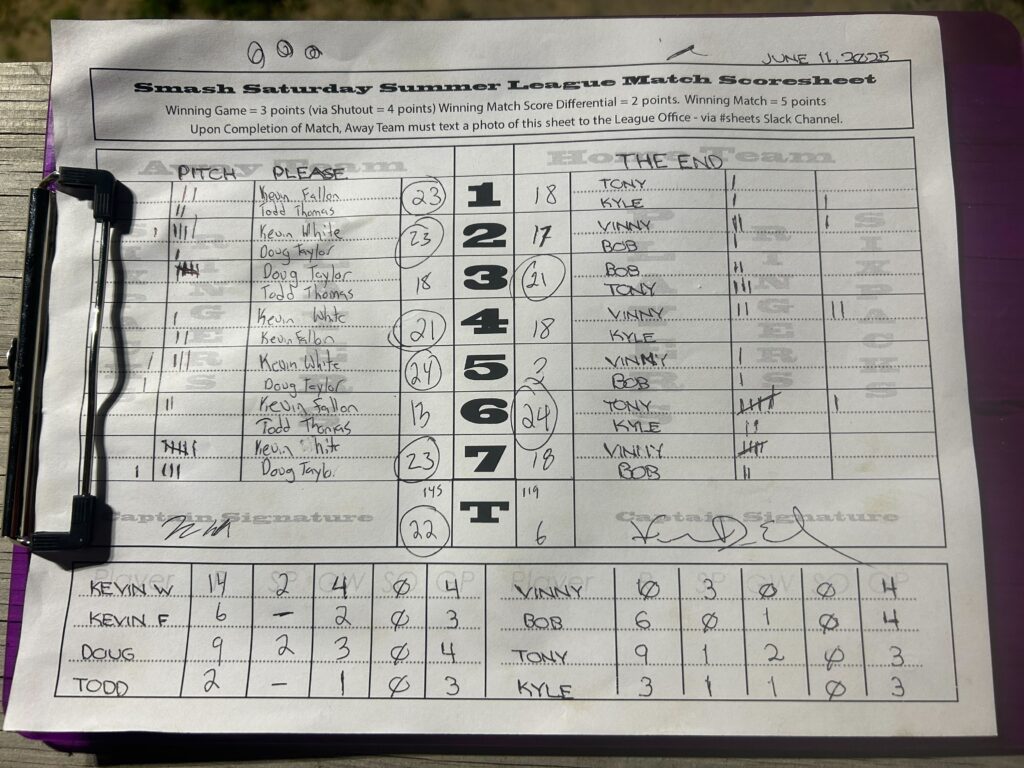 JUNE 11, 2025
Smash Saturday Summer League Match Scoresheet
Winning Game = 3 points (via Shutout = 4 points) Winning Match Score Differential = 2 points. Winning Match = 5 points
Upon Completion of Match, Away Team must text a photo of this sheet to the League Office - via #sheets Slack Channel.
Away Team Home Team
PITCH PLEASE THE END
Kevin Fallon 23 1 18 TONY
Todd Thomas KYLE
Kevin White 23 2 17 VINNY
Doug Taylor BOB
Doug Taylor 18 3 21 BOB
Todd Thomas TONY
Kevin White 21 4 18 VINNY
Kevin Fallon KYLE
Kevin White 24 5 3 VINNY
Doug Taylor BOB
Kevin Fallon 13 6 24 TONY
Todd Thomas KYLE
Kevin Whit 23 7 18 VINNY
Doug Taylo. BOB
145 T 119
Captain Signature 22 6 Captain Signature
Player R SP GW SO GP Player R SP GW SO GP
KEVIN W 14 2 4 0 4 VINNY 10 3 0 0 4
KEVIN F 6 - 2 0 3 BOB 6 0 1 0 4
DOUG 9 2 3 0 4 TONY 9 1 2 0 3
TODD 2 - 1 0 3 KYLE 3 1 1 0 3